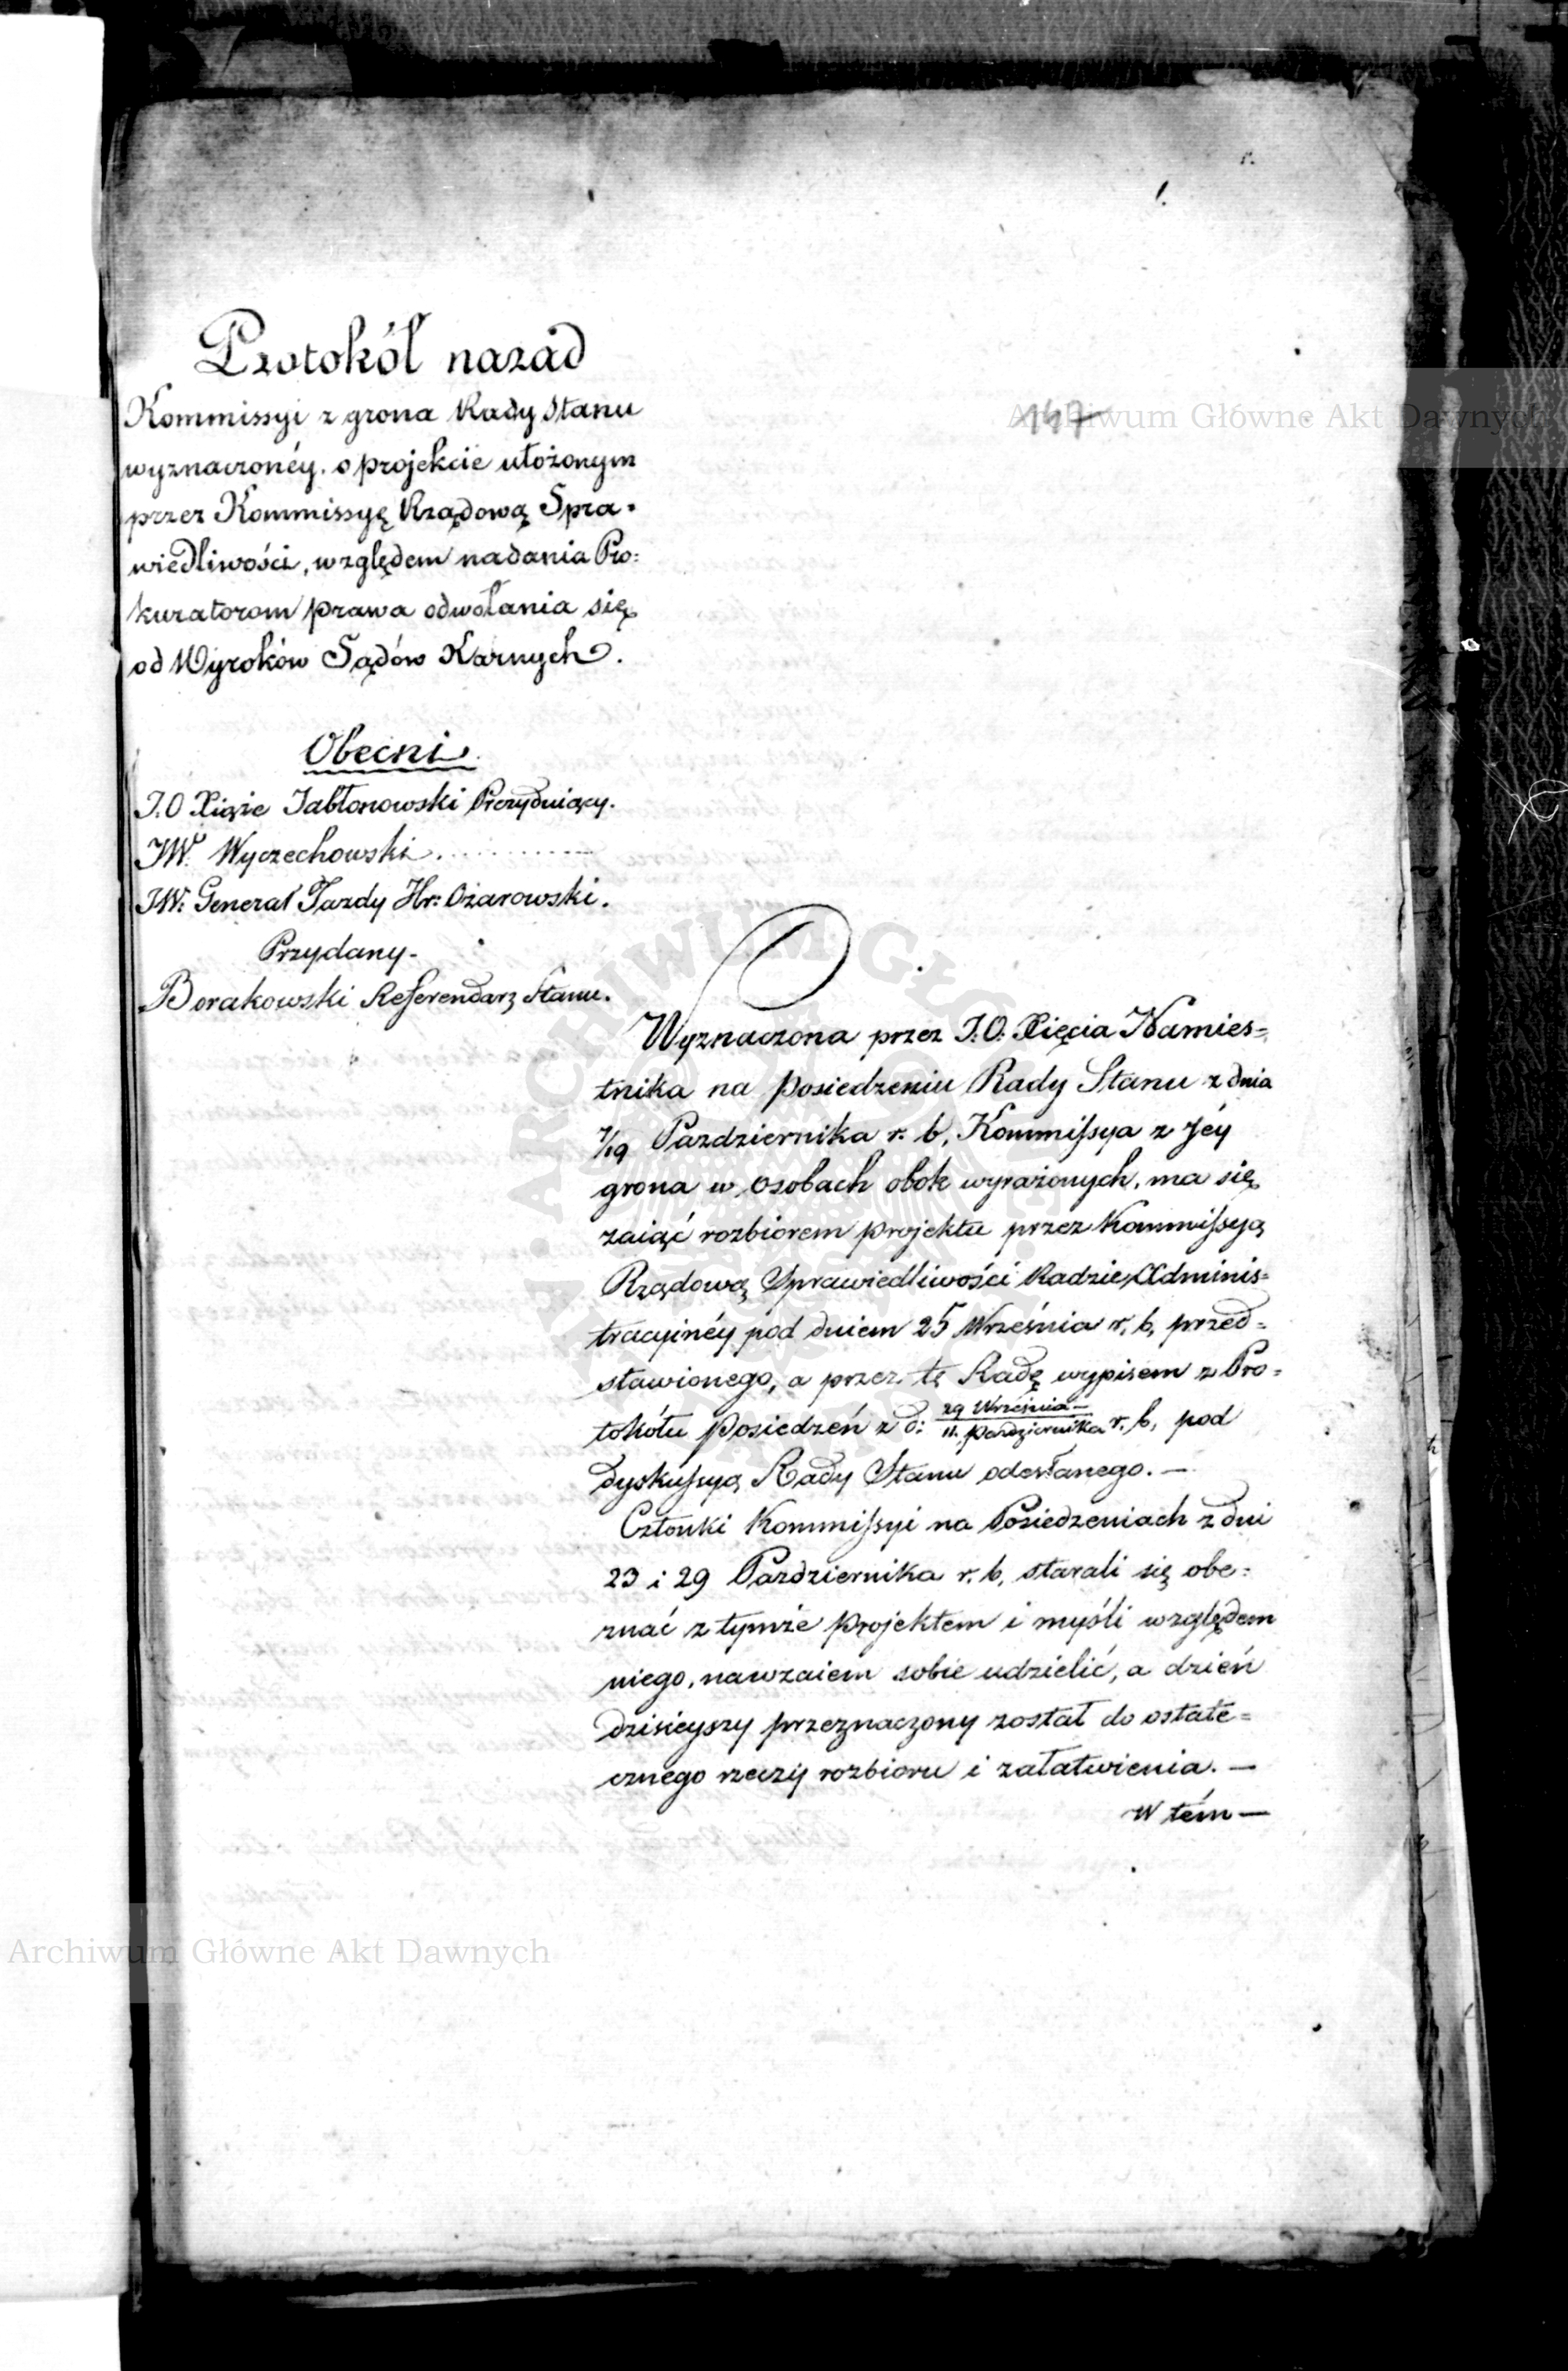 1.
147
Protokół narad
Kommissyi z grona Rady Stanu
wyznaczonéy. o projekcie ułożonym
przez Kommissyę Rządową Spra=
wiedliwości, względem nadania Pro=
kuratorom prawa odwołania się
od Wyroków Sądów Karnych.
Obecni
J.O Xiąże Jabłonowski Prezyduiący.
JW. Wyczechowski.
JW. Generał Jazdy Hr: Ożarowski.
Przydany.
Borakowski Referendarz Stanu.
Wyznaczona przez J.O. Xięcia Namies=
tnika na posiedzeniu Rady Stanu z dnia
7/19 Pazdziernika r. b, Kommissya z Jéy
grona w osobach obok wyrażonych, ma się
zaiąć rozbiorem projektu przez Kommissyą
Rządową Sprawiedliwości Radzie Adminis=
tracyinéy pod dniem 25 Września r. b. przed=
stawionego, a przez tę Radę wypisem z Pro=
tokółu posiedzeń z d: 29 Września / 11. Pazdziernika r. b, pod
dyskussyą Rady Stanu odesłanego. —
Członki Kommissyi na Posiedzeniach z dni
23 i 29 Pazdziernika r. b. starali się obe=
znać z tymże projektem i myśli względem
niego, nawzaiem sobie udzielić, a dzień
dzisieyszy przeznaczony został do ostate=
cznego rzeczy rozbioru i załatwienia. —
W tém —
Archiwum Główne Akt Dawnych
Archiwum Główne Akt Dawnych